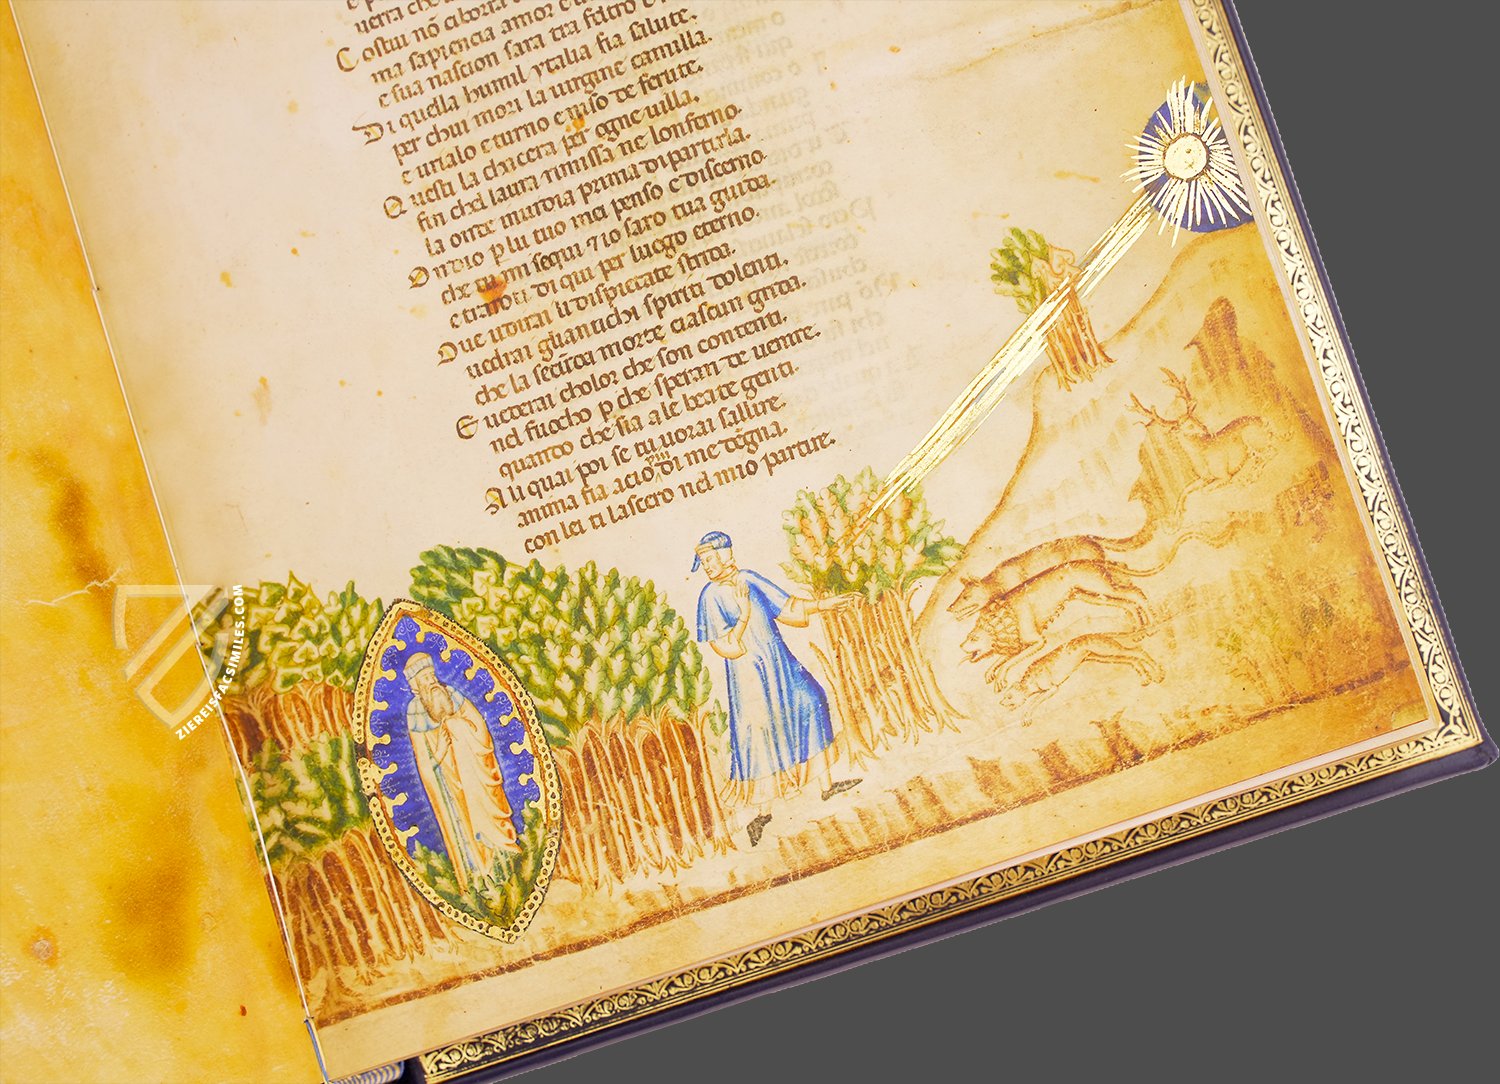 uerra che
Costui nō cibera
ma sapiencia amor e
e sua nascion sara tra feltro e
Di quella humil ytalia fia salute.
per chui mori la uirgine camilla.
e urialo e turno e niso de ferute.
Questi la chacera per ogne uilla.
fin chel laura rimissa ne lonferno.
la onde inuidia prima dipartirla.
Ondio p lu tuo mei penso e discerno.
che tu mi segui 7io saro tua guida.
e trarroti di qui per luogo eterno.
Doue udirai li dispietate strida.
uedrai gliantichi spiriti dolenti.
che la secūda morte ciascun grida.
E uederai cholor che son contenti.
nel fuocho p che speran de uenire.
quando che sia a le beate genti.
Ali quai poi se tu uorai sallire.
anima fia acio di me degna.
con lei ti lascero nel mio partire.
ZIEREISFACSIMILES.COM